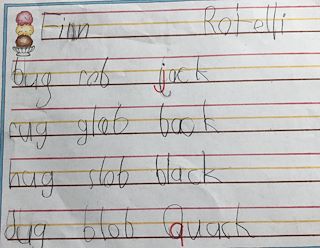 Finn Rotelli
bug rob jack
rug glob back
nug slob black
dug blob Quack